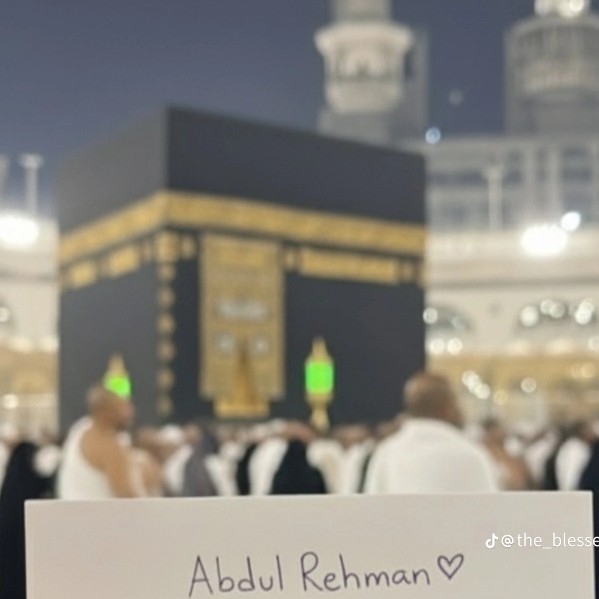 @the_blesse
Abdul Rehman♡